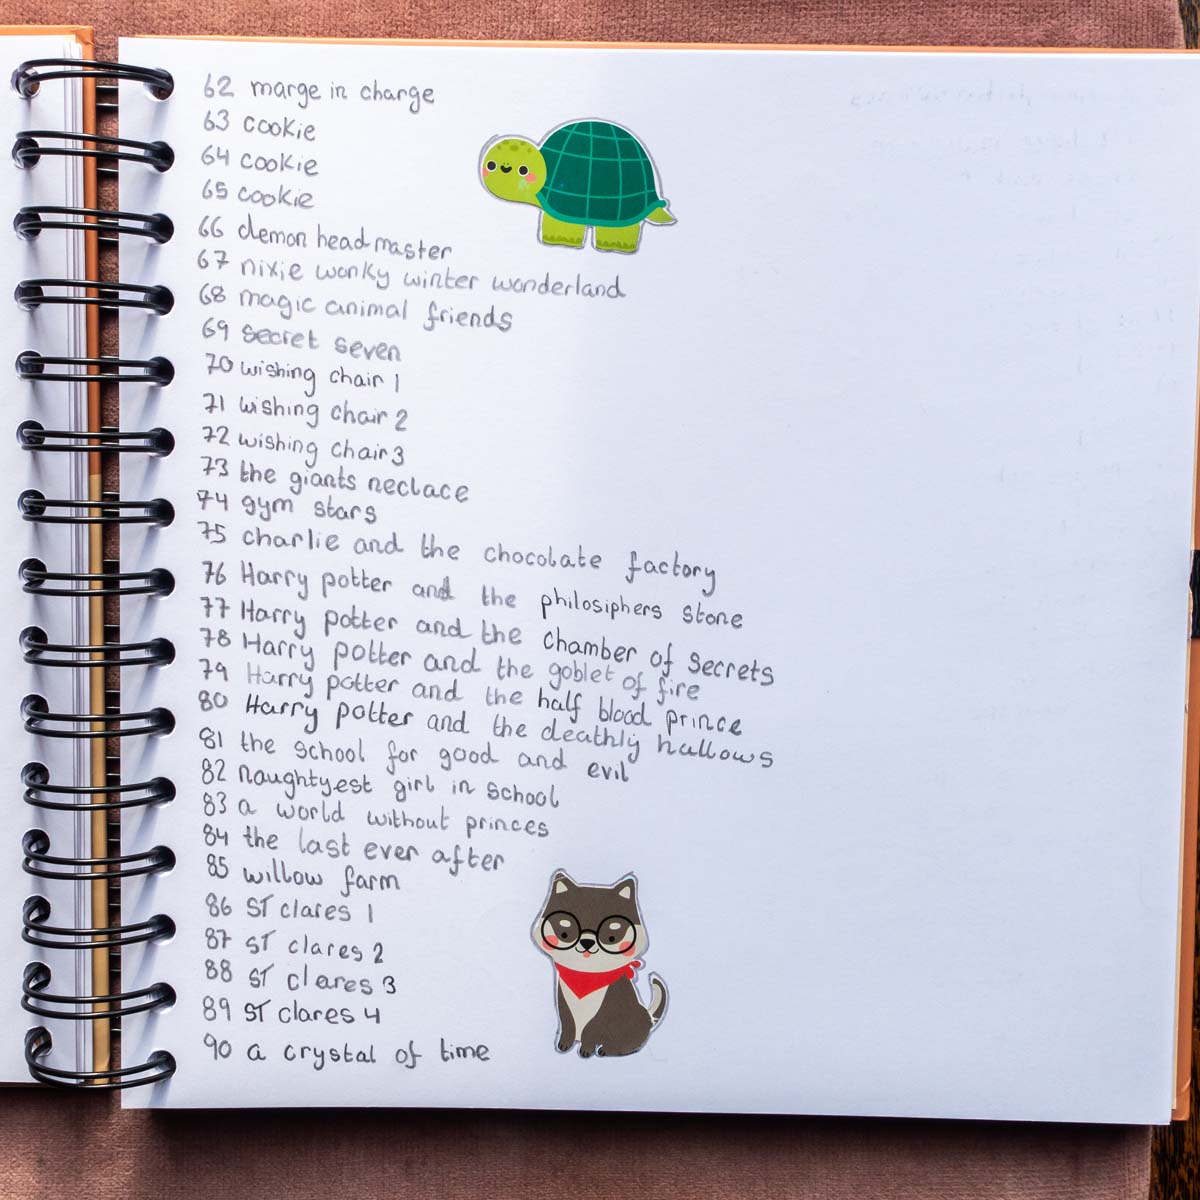 62 marge in charge
63 cookie
64 cookie
65 cookie
66 demon head master
67 nixie wonky winter wonderland
68 magic animal friends
69 secret seven
70 wishing chair 1
71 wishing chair 2
72 wishing chair 3
73 the giants neclace
74 gym stars
75 charlie and the chocolate factory
76 Harry potter and the philosiphers stone
77 Harry potter and the chamber of secrets
78 Harry potter and the goblet of fire
79 Harry potter and the half blood prince
80 Harry potter and the deathly hallows
81 the school for good and evil
82 naughtyest girl in school
83 a world without princes
84 the last ever after
85 willow farm
86 ST clares 1
87 ST clares 2
88 ST clares 3
89 ST clares 4
90 a crystal of time